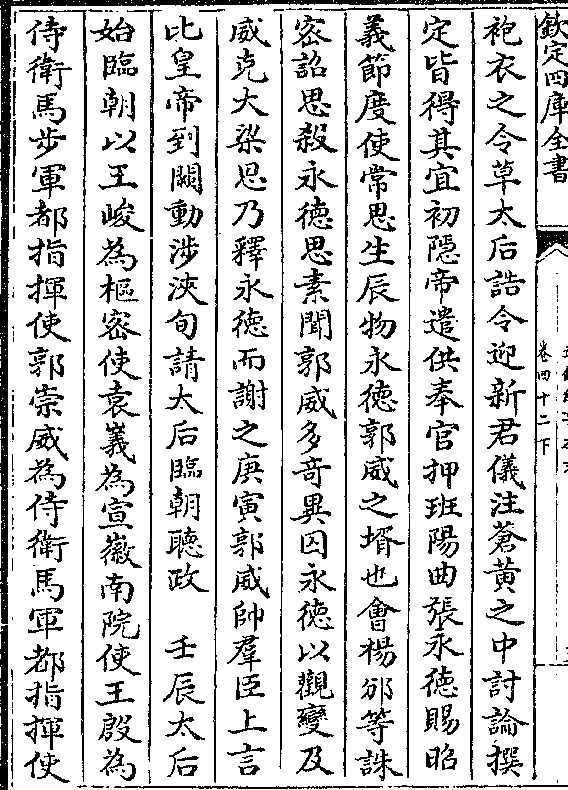 欽定四庫全書
卷四十二下
袍衣之令草太后誥令迎新君儀注蒼黄之中討論撰
定皆得其宜初隱帝遣供奉官押班陽曲張永德賜昭
義節度使常思生辰物永德郭威之壻也會楊邠等誅
密詔思殺永德思素聞郭威多奇異囚永德以觀變及
威克大梁思乃釋永德而謝之庚寅郭威帥羣臣上言
比皇帝到闕動渉浹旬請太后臨朝聽政　壬辰太后
始臨朝以王峻為樞密使袁㠖為宣徽南院使王殷為
侍衛馬步軍都指揮使郭崇威為侍衛馬軍都指揮使